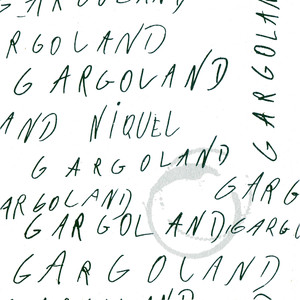 GARGOLAND
RGOLAND
GARGOLAND
AND NIQUEL
GARGOLAND
GARGOLAND
GARG
ARGOLAND
GARGOLAND
GARGO
GARGOLAND
GARGOLAND